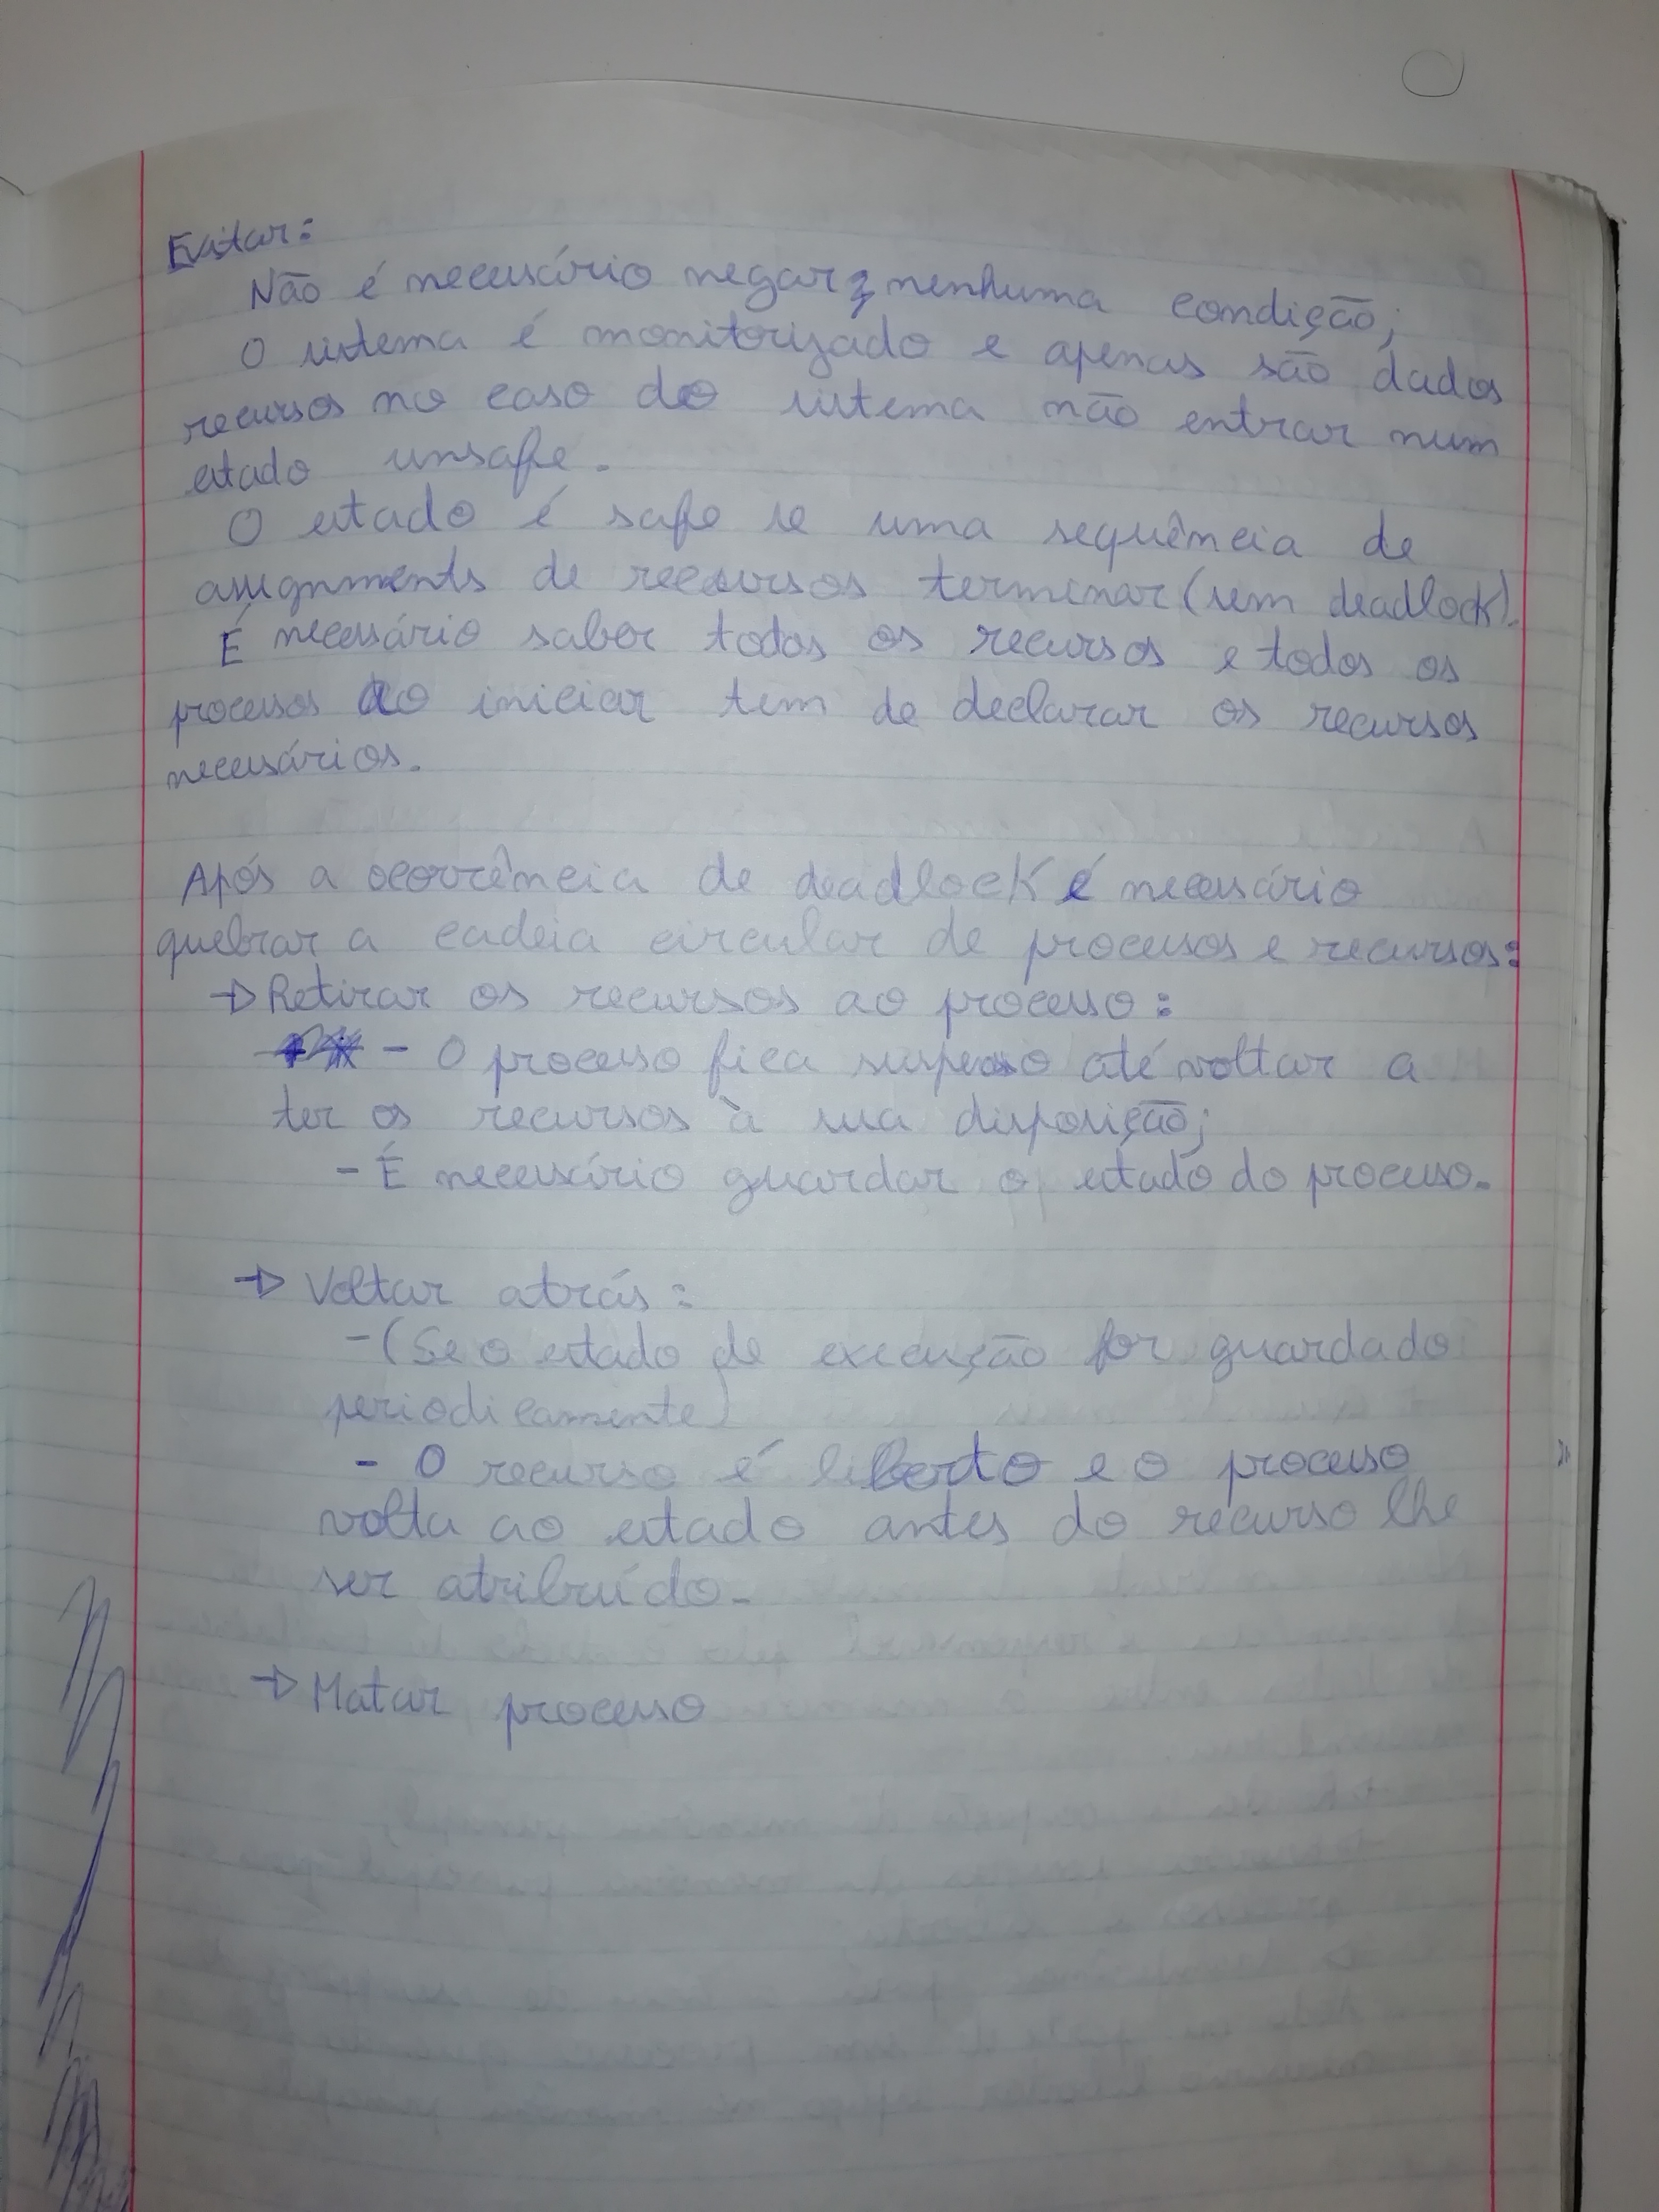 Evitar:
Não é necessário negar nenhuma condição;
O sistema é monitorizado e apenas são dados
recursos no caso do sistema não entrar num
estado unsafe.
O estado é safe se uma sequência de
assignments de recursos terminar (sem deadlock).
É necessário saber todos os recursos e todos os
processos ao iniciar tem de declarar os recursos
necessários.
Após a ocorrência de deadlock é necessário
quebrar a cadeia circular de processos e recursos:
→ Retirar os recursos ao processo:
- O processo fica suspenso até voltar a
ter os recursos à sua disposição;
- É necessário guardar o estado do processo.
→ Voltar atrás:
- (Se o estado de execução for guardado
periodicamente)
- O recurso é liberto e o processo
volta ao estado antes do recurso lhe
ser atribuído.
→ Matar processo